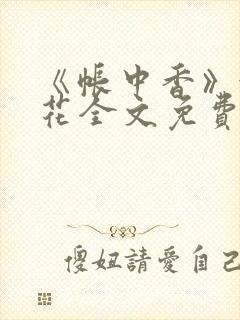 《帳中香》
花全文免費
傻妞請愛自己